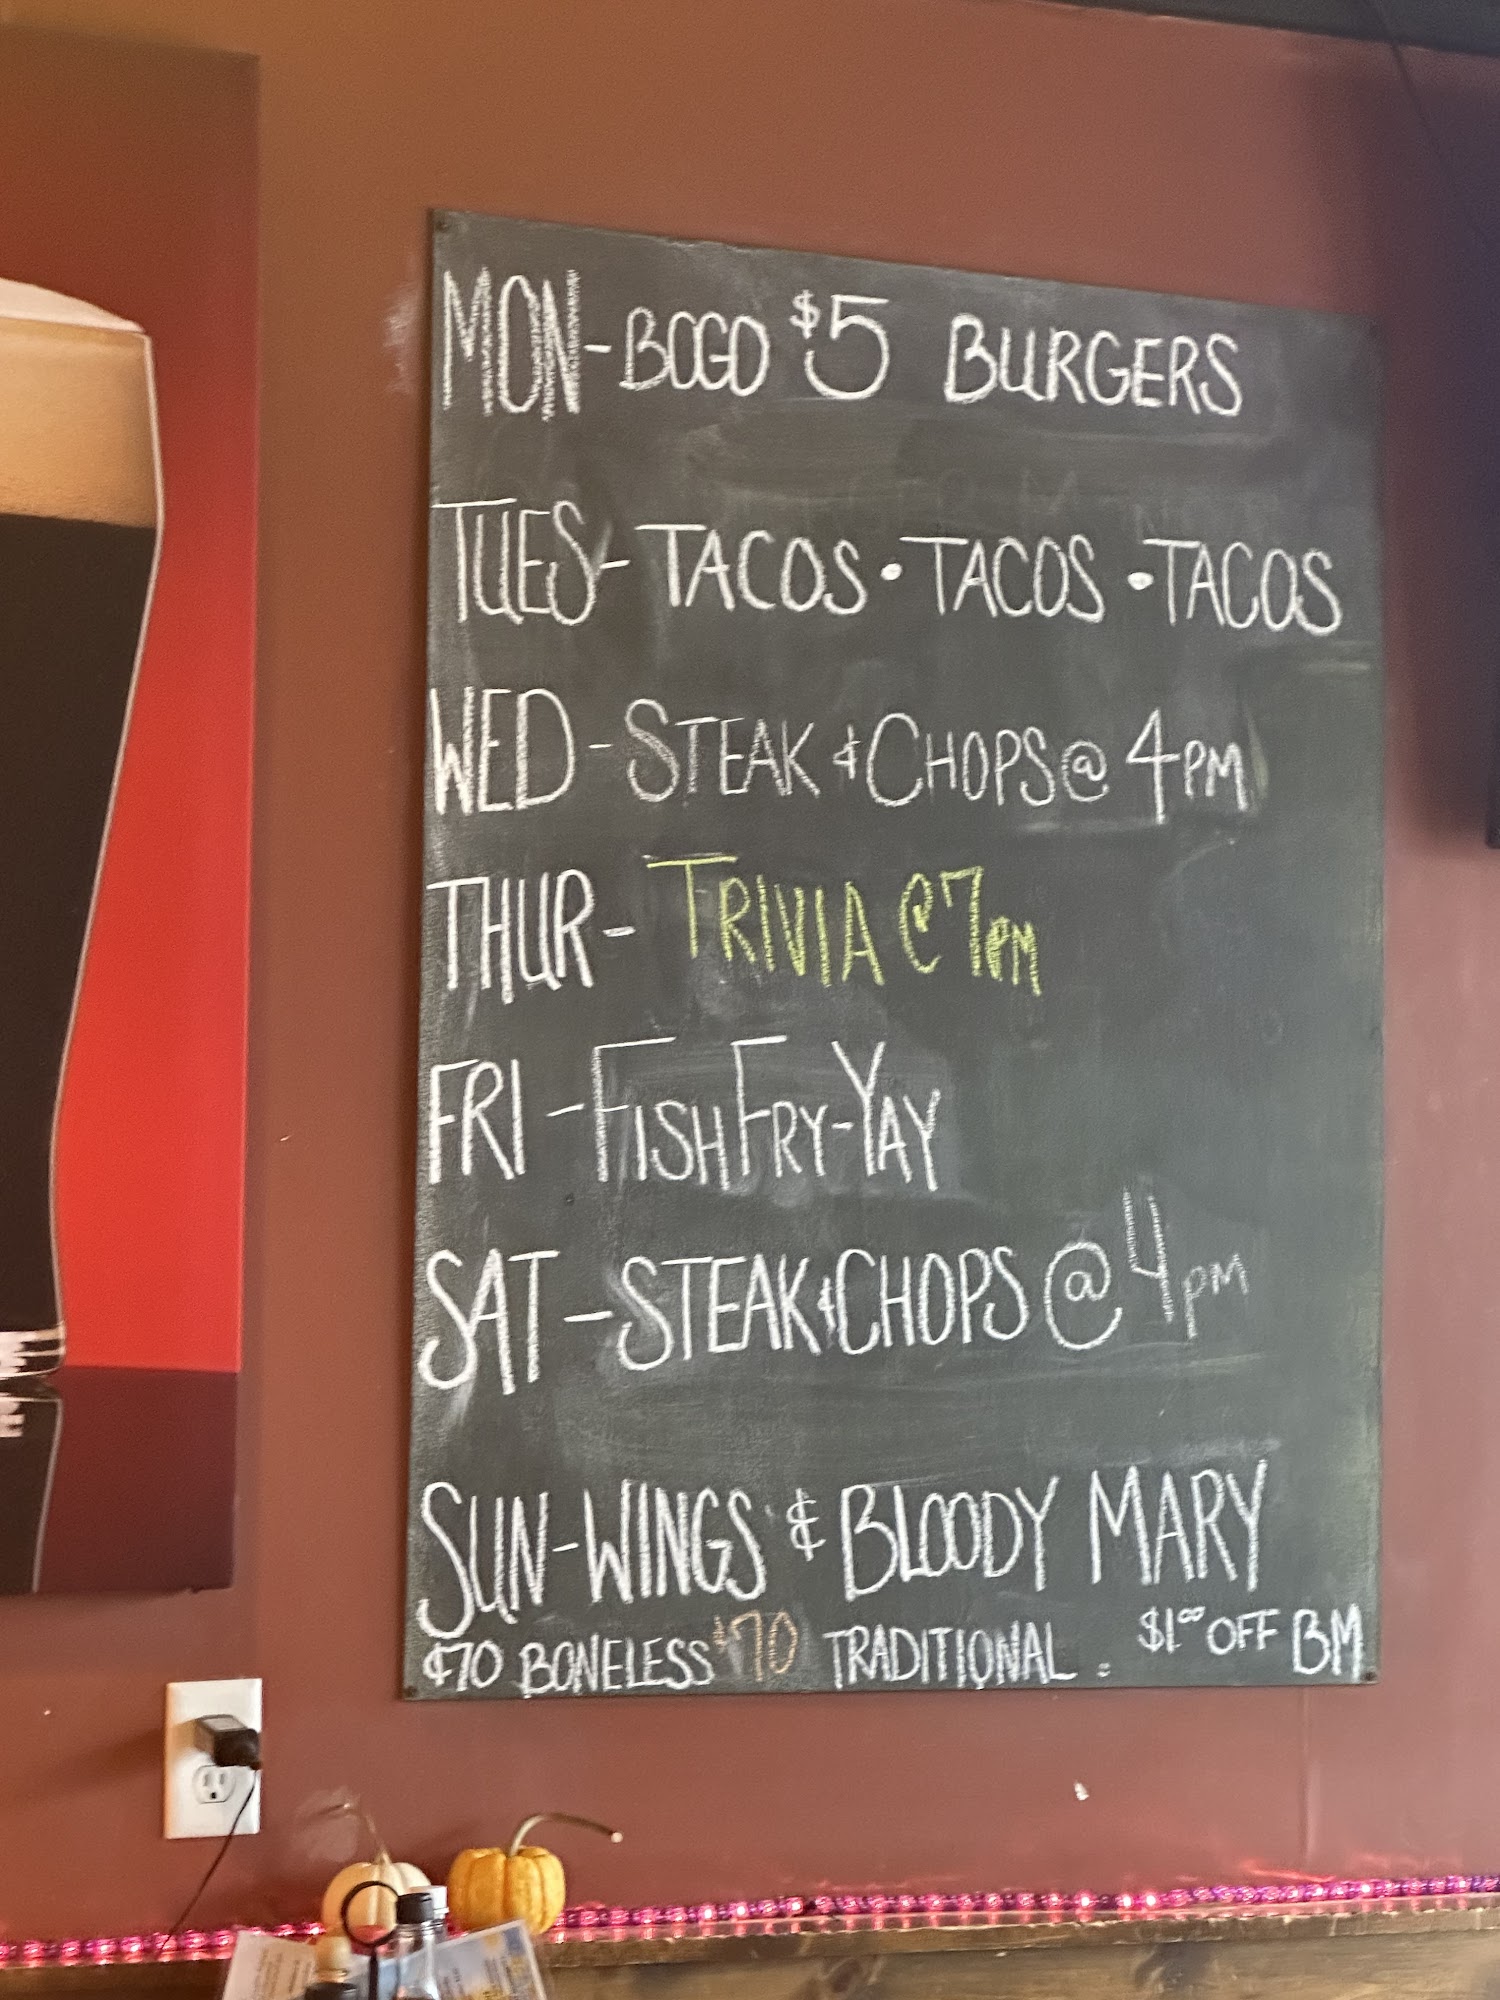 MON-BOGO $5 BURGERS
TUES-TACOS•TACOS•TACOS
WED-STEAK & CHOPS @ 4PM
THUR-TRIVIA @ 7PM
FRI-FISH FRY-YAY
SAT-STEAK & CHOPS @ 4PM
SUN-WINGS & BLOODY MARY
¢70 BONELESS ¢70 TRADITIONAL. $1.00 OFF BM